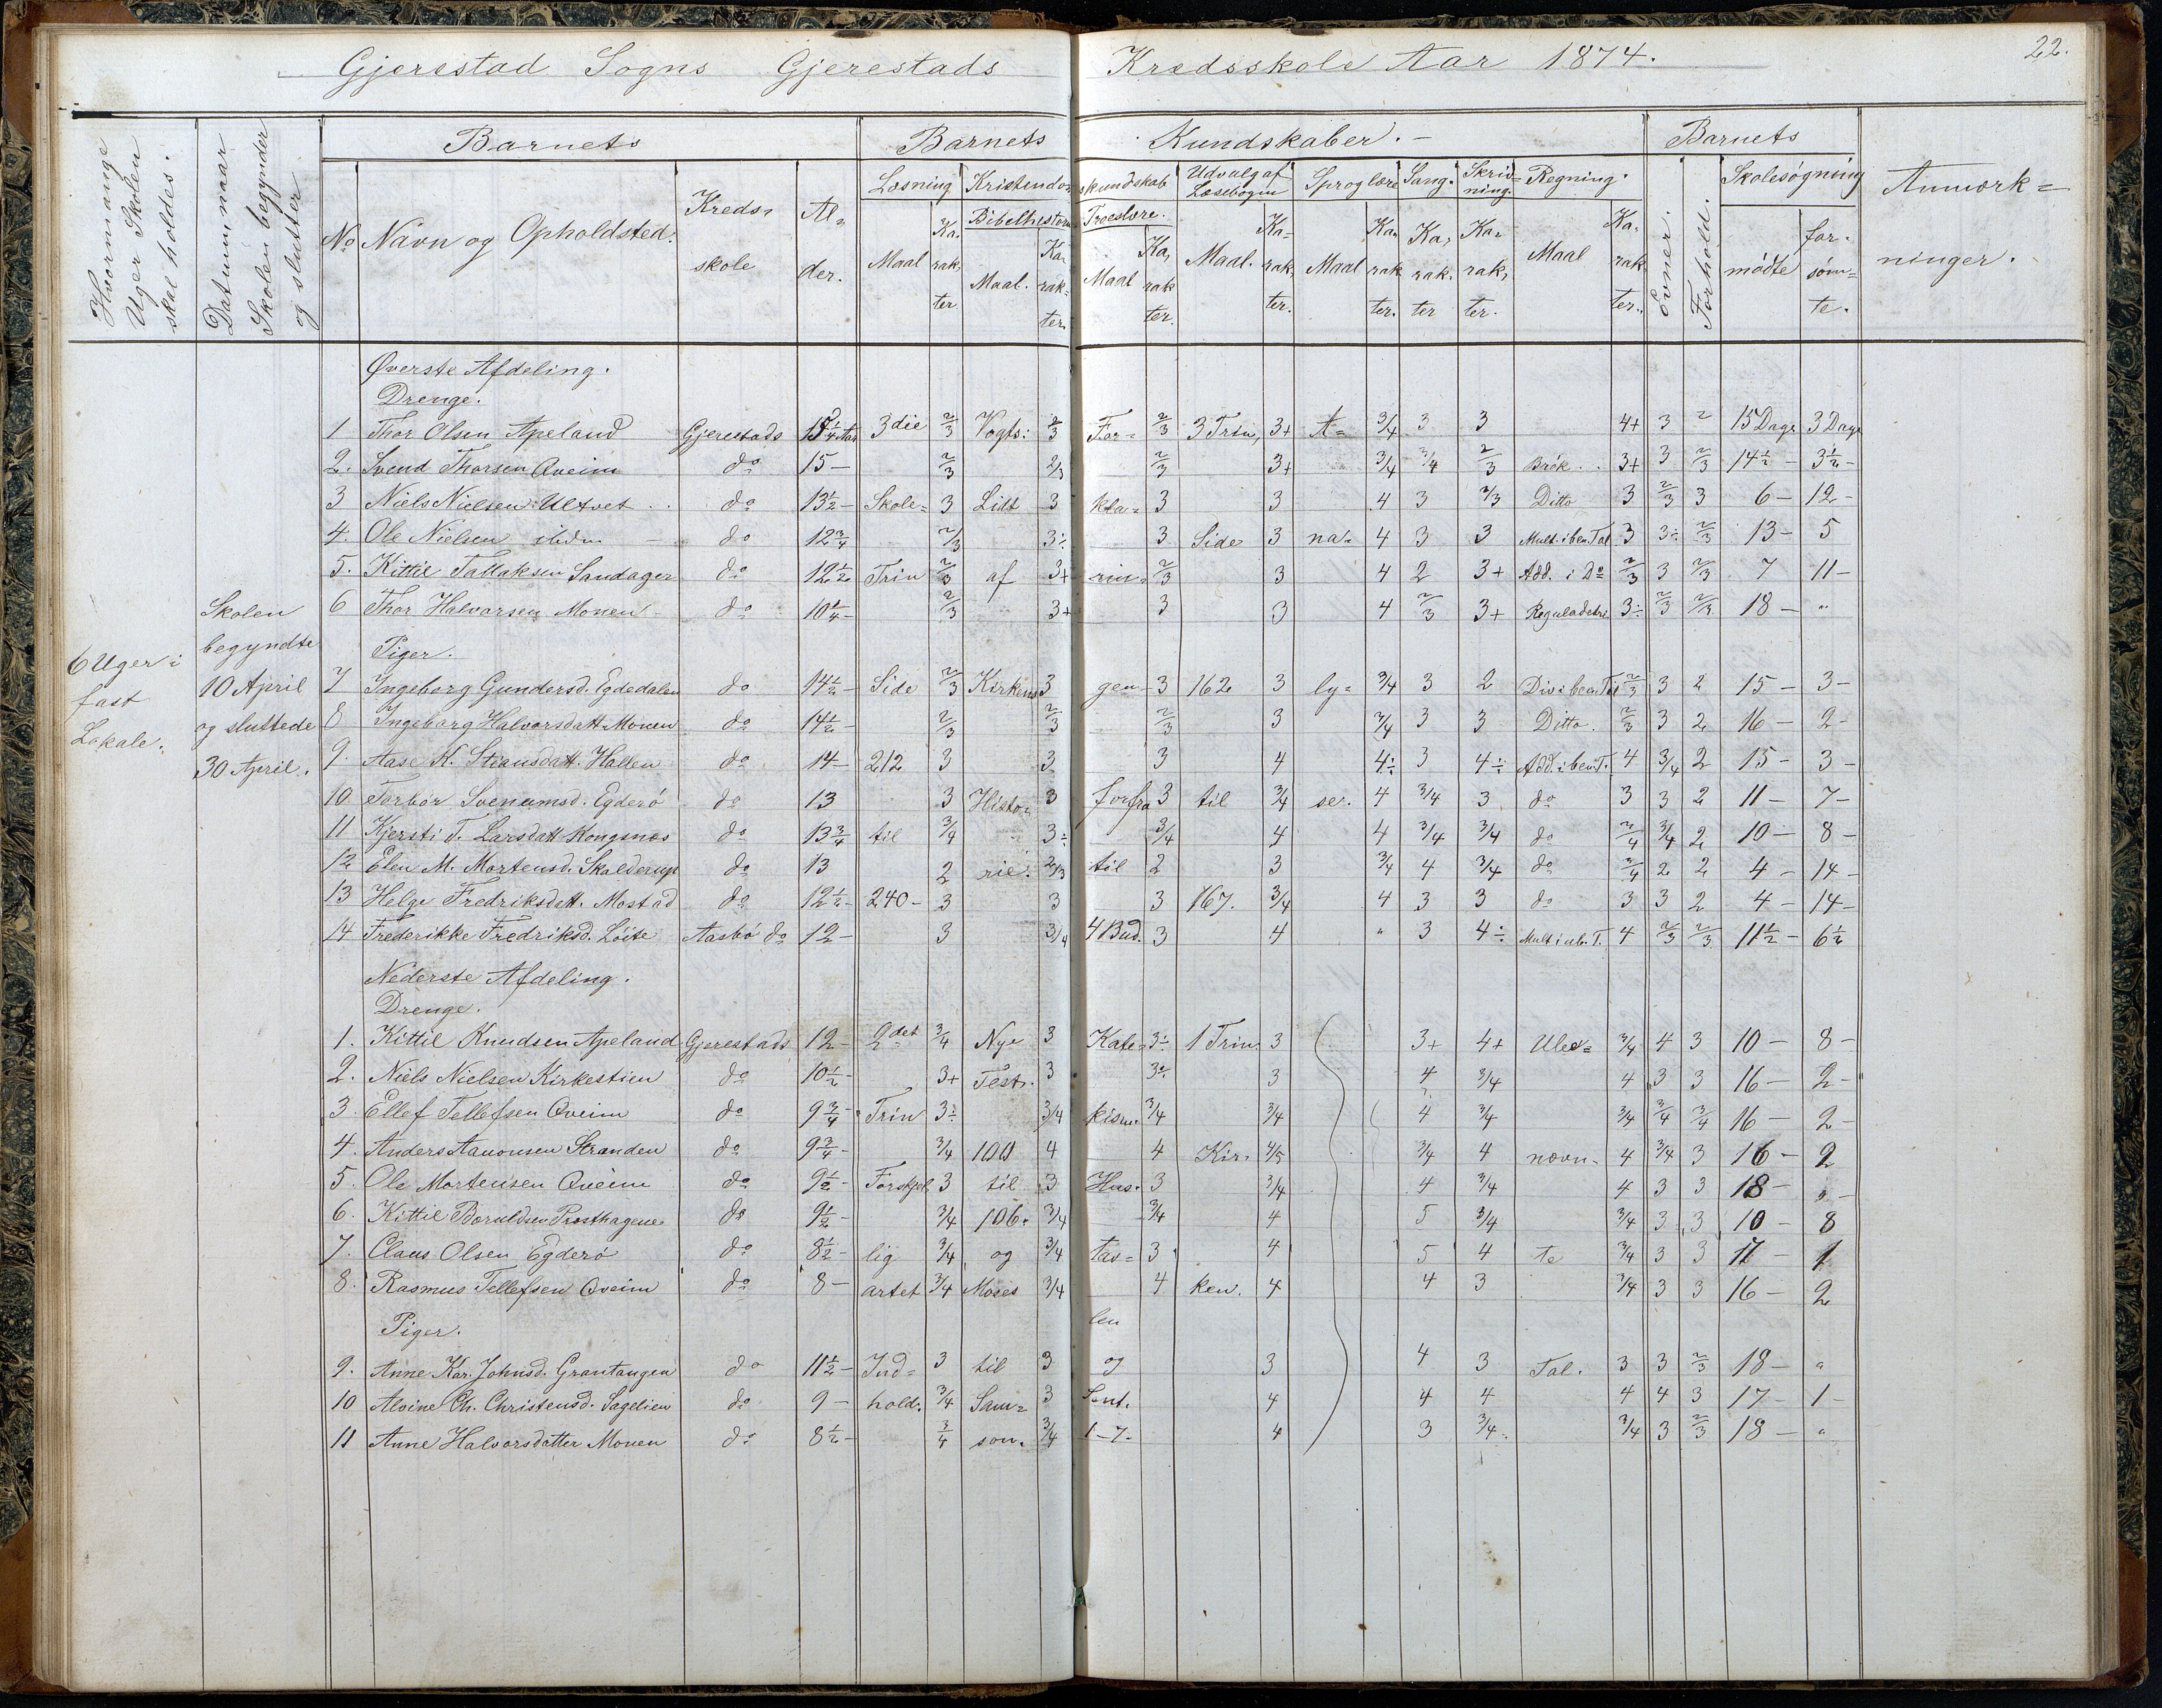 Gjerestad Sogns Gjerestads Kredsskole Aar 1874. 22.
Hvormange Uger Skolen skal holdes.
Datum, naar Skolen begynder og slutter
Barnets Barnets Kundskaber. Barnets
No Navn og Opholdsted. Kreds- skole Al- der. Læsning Kristendomskundskab Udvalg af Læsebogen Sproglære Sang. Skriv- ning. Regning. Evner. Forhold. Skolesøgning Anmærk- ninger.
Bibelhistorie Troeslære.
Maal Ka- rak- ter. Maal. Ka- rak- ter. Maal Ka- rak- ter. Maal. Ka- rak- ter. Maal Ka- rak- ter. Ka- rak- ter Ka- rak- ter. Maal Ka- rak- ter. mødte for- søm- te.
6 Uger i fast Lokale.
Skolen begyndte 10 April og sluttede 30 April.
Øverste Afdeling.
Drenge.
1 Thor Olsen Apeland Gjerestads Aar 3die 2/3 Vogts: 2/3 For= 2/3 3 Trin, 3+ A= 3/4 3 3 4+ 3 2 15 Dage 3 Dage
2. Svend Thorsen Qveim do 15 - 2/3 2/3 2/3 3+ 3/4 3/4 2/3 Brök. 3+ 3 2/3 14 1/2 - 3 1/2 -
3 Niels Nielsen Ulsvet do 13 1/2 - Skole= 3 Lidt 3 kla= 3 3 4 3 2/3 Ditto 3 2/3 3 6 - 12 -
4. Ole Nielsen ibidm - do 12 3/4 2/3 3÷ 3 Side 3 na= 4 3 3 Mult. i ben. Tal 3 3÷ 2/3 13 - 5
5. Kittil Tallaksen Sandager do 12 1/2 Trin 2/3 af 3+ rin= 2/3 3 4 2 3+ Add. i Do 2/3 3 2/3 7 11 -
6 Thor Halvorsen Monen - do 10 1/4 - 2/3 3+ 3 3 4 2/3 3+ Reguladetri 3÷ 2/3 2/3 18 - "
Piger.
7 Ingeborg Gundersd. Egdedalen do 14 1/2 - Side 2/3 Kirkens 3 gen 3 162 3 ly= 3/4 3 2 Div i ben. Tal 2/3 3 2 15 - 3 -
8 Ingeborg Halvorsdatt. Monen do 14 1/2 - 2/3 2/3 2/3 3 3/4 3 3 Ditto. 2/3 3 2 16 - 2 -
9. Aase K. Stiansdatt. Hallen do 14 - 212 3 3 3 4 4÷ 3 4÷ Add. i ben. T. 4 3/4 2 15 - 3 -
10 Torbör Svenumsd. Egderö do 13 3 Histo= 3 forfra 3 til 3/4 ser. 4 3/4 3 do 3 3 2 11 - 7 -
11 Kjersti T. Larsdatt Kongsnæs do 13 3/4 til 3/4 3÷ 3/4 4 4 3/4 3/4 do 3/4 3/4 2 10 - 8 -
12 Elen M. Mortensd. Skalderup do 13 2 rie. 2/3 til 2 3 3/4 4 3/4 do 3/4 2 2 4 - 14 -
13 Helge Fredriksdatt. Mostad do 12 1/2 - 240 - 3 3 3 167. 3/4 4 3 3 do 3 3 2 4 - 14 -
14 Frederikke Fredriksd. Löite Aasbö do 12 - 3 3/4 4 Bud. 3 4 " 3 4÷ Mult i ub. T. 4 2/3 2/3 11 1/2 - 6 1/2
Nederste Afdeling.
Drenge.
1. Kittil Knudsen Apeland Gjerestads 12 - 2det 3/4 Nye 3 Kate= 3÷ 1 Trin. 3 3+ 4+ Ube= 3/4 4 3 10 - 8 -
2. Niels Nielsen Kirkestien do 10 1/2 - 3+ Test. 3 3÷ 3 4 3/4 4 3 3 16 - 2 -
3. Ellef Tellefsen Qveim do 9 3/4 - Trin 3÷ 3/4 kism. 3/4 3/4 4 3/4 3/4 3/4 3/4 16 - 2 -
4. Anders Aanonsen Stranden do 9 3/4 - 3/4 100 4 4 Kir= 4/5 3/4 4 nævn= 4 3/4 3 16 - 2
5. Ole Mortensen Qveim do 9 1/2 - Forskjel 3 til 3 Hus= 3 3/4 4 3/4 4 3 3 18 - " -
6. Kittil Boruldsen Præsthagene do 9 1/2 - 3/4 106. 3/4 3/4 4 5 3/4 3/4 3 3 10 - 8
7. Claus Olsen Egderö do 8 1/2 - lig 3/4 og 3/4 tav= 3 4 5 4 te 3/4 3 3 17 - 1
8. Rasmus Tellefsen Qveim do 8 - artet 3/4 Moses 3/4 4 ken. 4 4 3 3/4 3 3 16 - 2
Piger. len
9. Anne Kar. Johnsd. Grantangen do 11 1/2 - Ind= 3 til 3 og 3 4 3 Tal. 3 3 2/3 18 - "
10 Alvine Ch. Christensd. Sagelien do 9 - hold. 3/4 Sam= 3 Sent. 4 4 4 4 4 3 17 - 1 -
11 Anne Halvorsdatter Monen do 8 1/2 - 3/4 son. 3/4 1-7. 4 3 3/4 3/4 3 2/3 18 - "